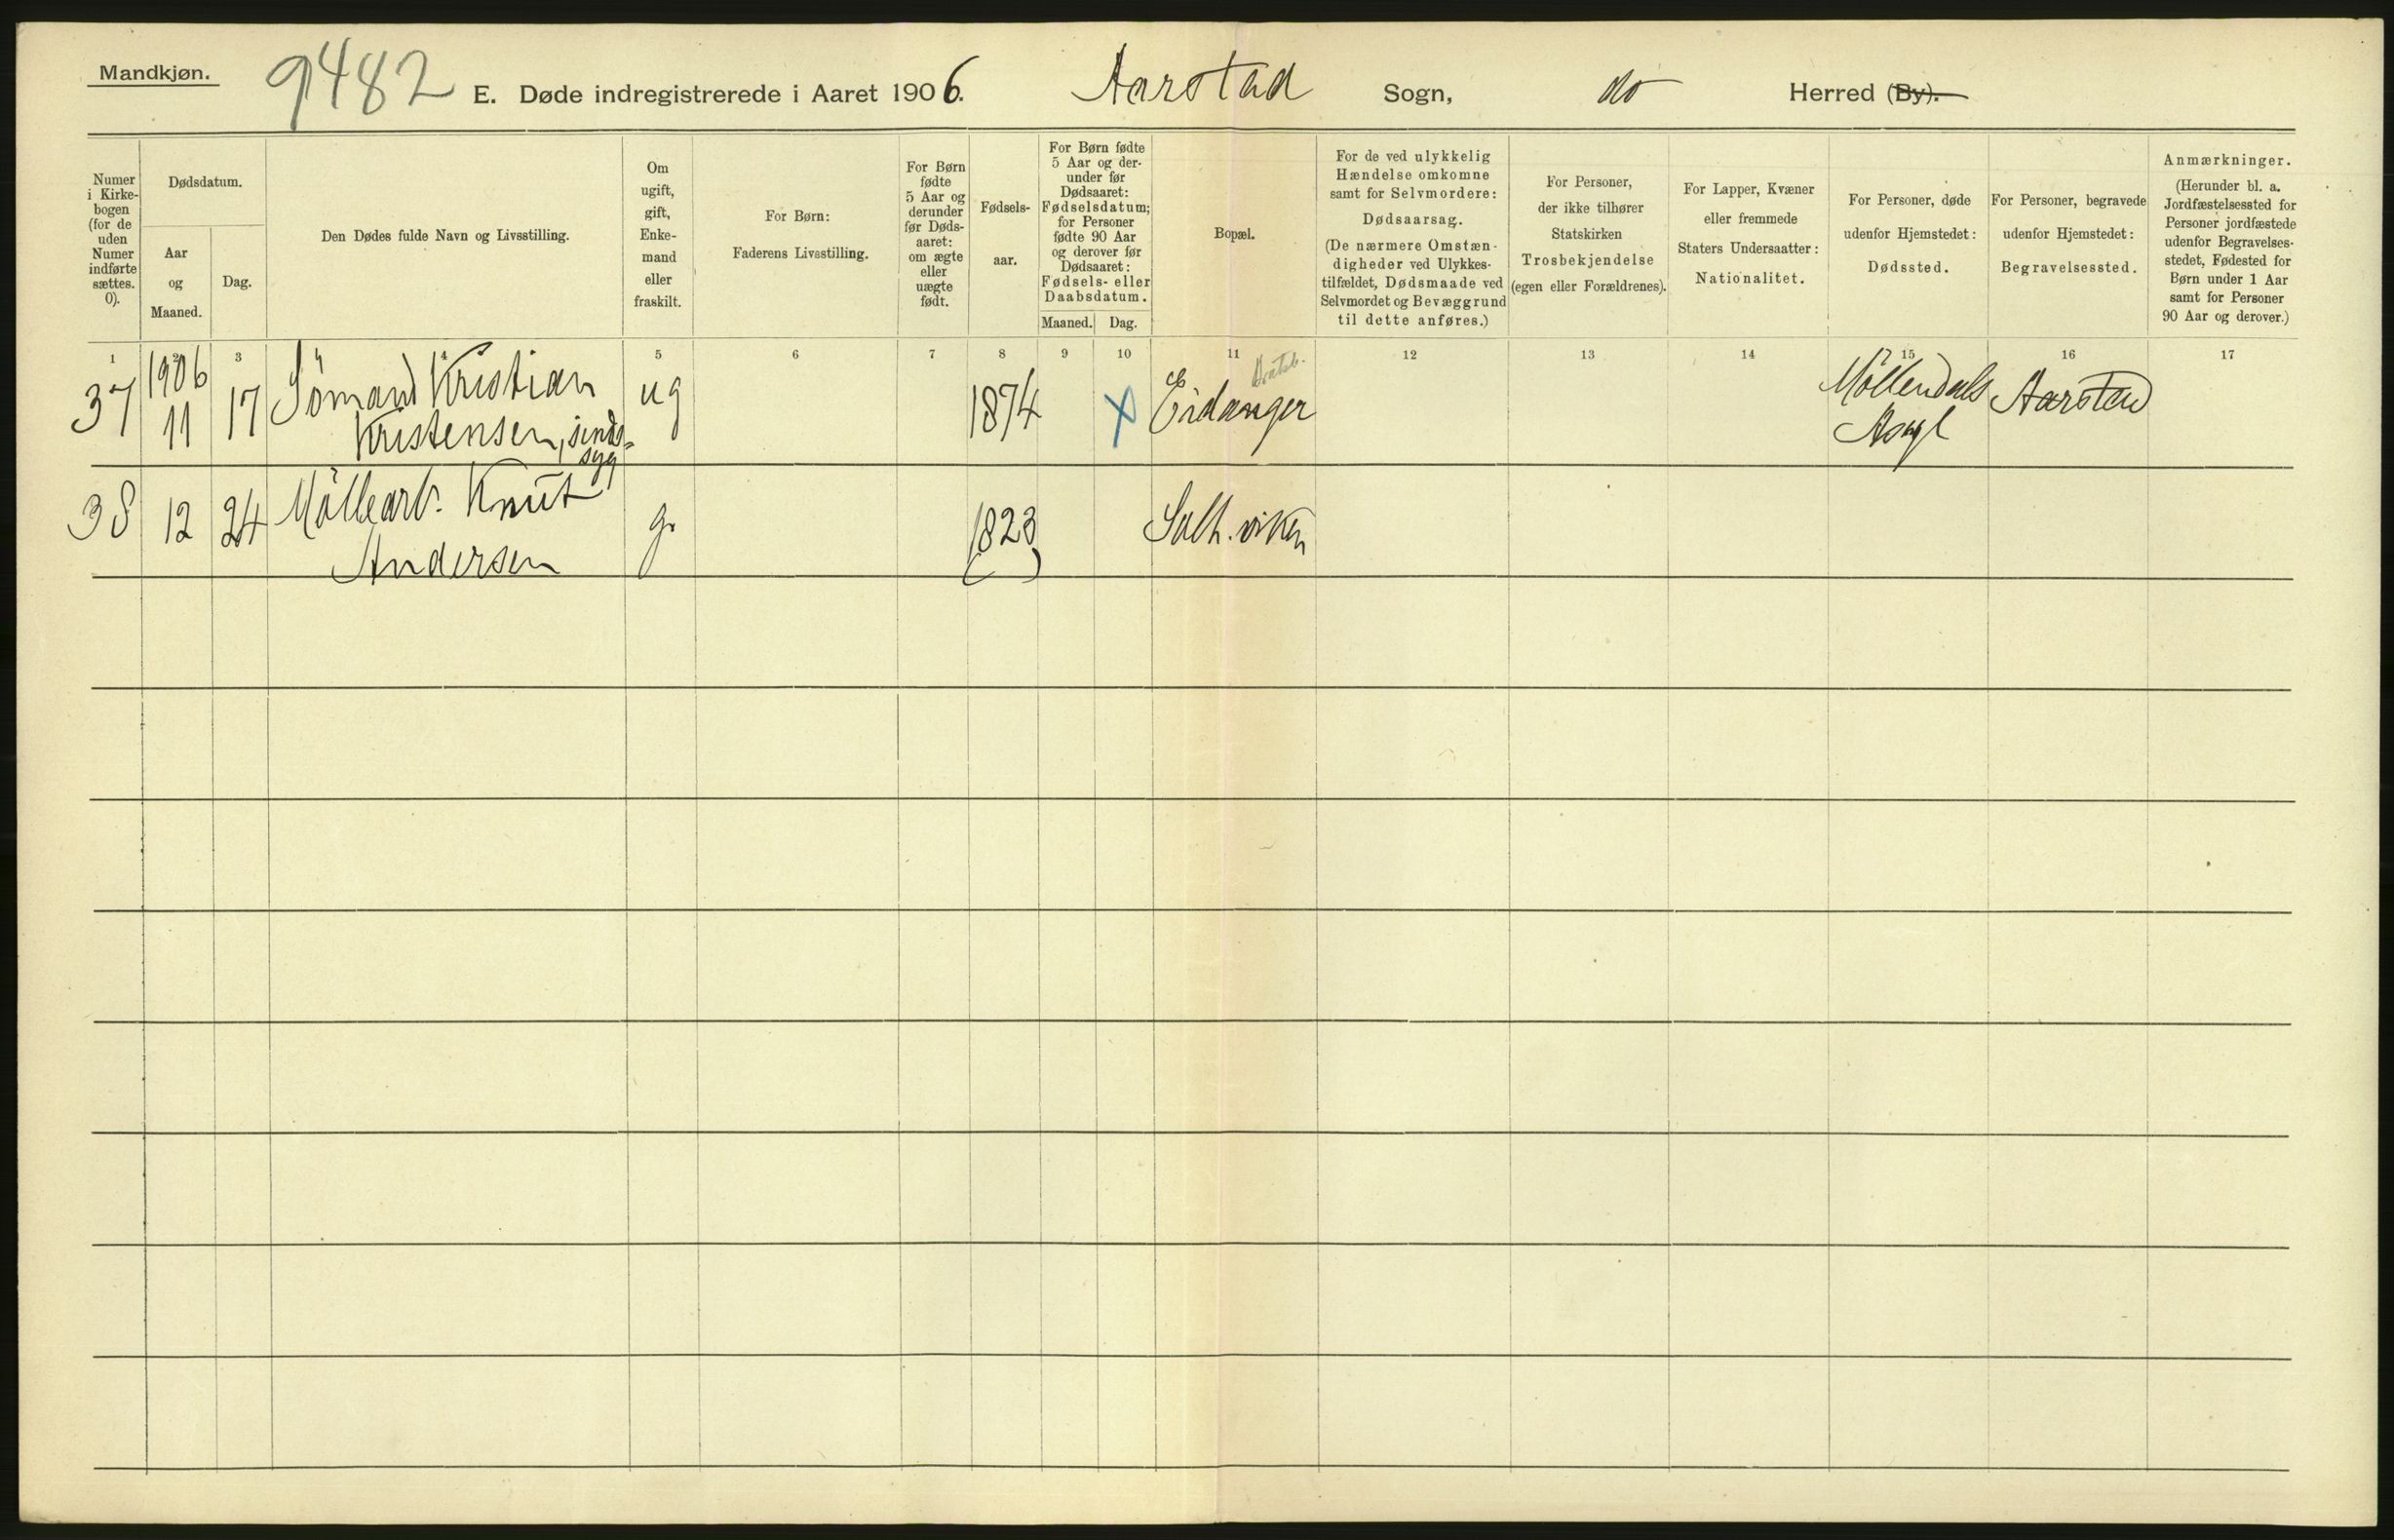 Mandkjøn.
9482
E. Døde indregistrerede i Aaret 1906. Aarstad Sogn, do Herred (By).
Numer
i Kirke-
bogen
(for de
uden
Numer
indførte
sættes.
0).
Dødsdatum.
Aar
og
Maaned.
Dag.
Den Dødes fulde Navn og Livsstilling.
Om
ugift,
gift,
Enke-
mand
eller
fraskilt.
For Børn:
Faderens Livsstilling.
For Børn
fødte
5 Aar og
derunder
før Døds-
aaret:
om ægte
eller
uægte
født.
Fødsels-
aar.
For Børn fødte
5 Aar og der-
under før
Dødsaaret:
Fødselsdatum;
for Personer
fødte 90 Aar
og derover før
Dødsaaret:
Fødsels- eller
Daabsdatum.
Maaned. Dag.
Bopæl.
For de ved ulykkelig
Hændelse omkomne
samt for Selvmordere:
Dødsaarsag.
(De nærmere Omstæn-
digheder ved Ulykkes-
tilfældet, Dødsmaade ved
Selvmordet og Bevæggrund
til dette anføres.)
For Personer,
der ikke tilhører
Statskirken
Trosbekjendelse
(egen eller Forældrenes).
For Lapper, Kvæner
eller fremmede
Staters Undersaatter:
Nationalitet.
For Personer, døde
udenfor Hjemstedet:
Dødssted.
For Personer, begravede
udenfor Hjemstedet:
Begravelsessted.
Anmærkninger.
(Herunder bl. a.
Jordfæstelsessted for
Personer jordfæstede
udenfor Begravelses-
stedet, Fødested for
Børn under 1 Aar
samt for Personer
90 Aar og derover.)
1 2 3 4 5 6 7 8 9 10 11 12 13 14 15 16 17
37 1906 11 17 Sömand Kristian
Kristensen, sinds-
syg
ug 1874 X Eidanger
Bratsb.
Möllendals
Asyl
Aarstad
38 12 24 Möllearb. Knut
Andersen
g. 1823 Solh.viken